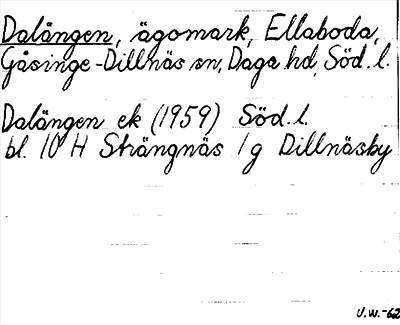 Dalängen, ägomark, Ellaboda,
Gåsinge-Dillnäs sn, Daga hd, Söd. l.
Dalängen ek (1959) Söd. l.
bl. 10 H Strängnäs 1g Dillnäsby
U.W.-62